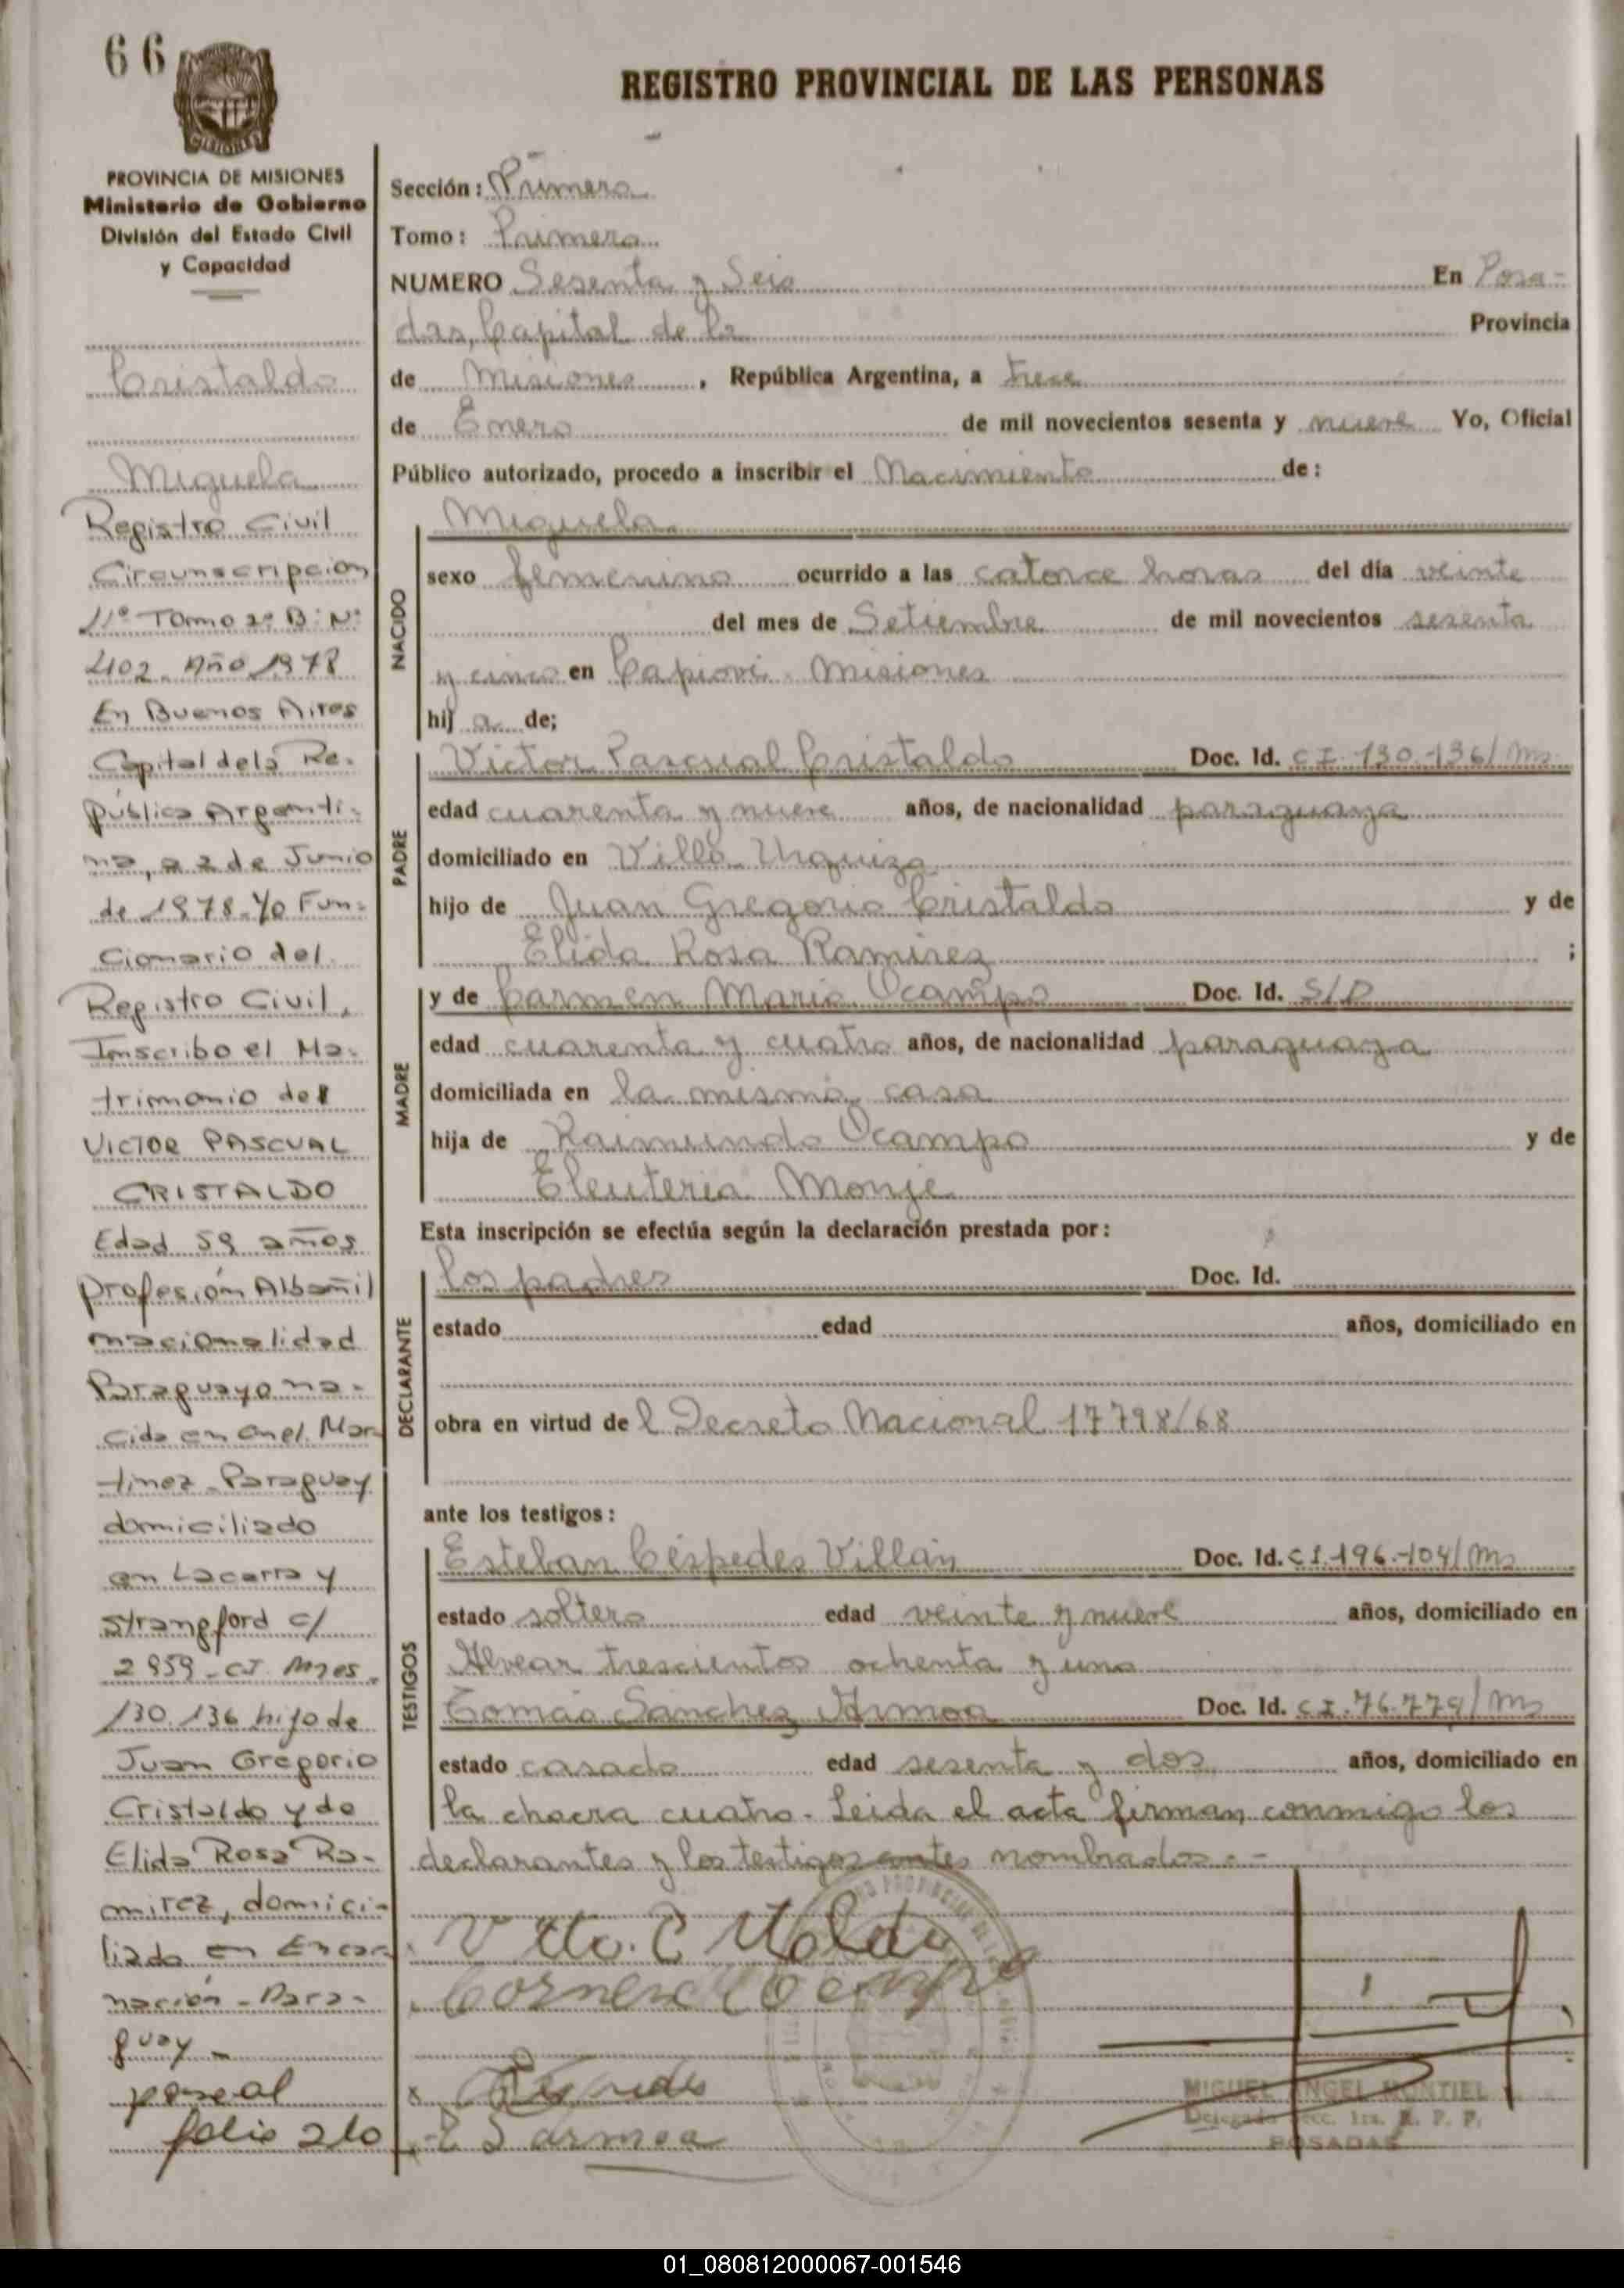 66
REGISTRO PROVINCIAL DE LAS PERSONAS
MISIONES
PROVINCIA DE MISIONES
Ministerio de Gobierno
División del Estado Civil
y Capacidad
Cristaldo
Miguela
Registro Civil
Circunscripcion
11º Tomo 2º B: Nº
402. Año 1978
En Buenos Aires
Capital dela Re-
pública Argenti-
na, a 2 de Junio
de 1978. Yo Fun-
cionario del
Registro Civil,
Inscribo el Ma-
trimonio de
VICTOR PASCUAL
CRISTALDO
Edad 59 años
profesión Albañil
nacionalidad
Paraguayo na-
cido en Cnel. Mar
tinez - Paraguay
domiciliado
en Lacarra y
Strangford c/
2959 - C.I. Mnes.
130.136 hijo de
Juan Gregorio
Cristaldo y de
Elida Rosa Ra-
mirez, domici-
liado en Encar
nación - Para-
guay -
folio 210
Sección: Primera
Tomo: Primero
NUMERO Sesenta y Seis En Posa-
das, Capital de la Provincia
de Misiones, República Argentina, a trece
de Enero de mil novecientos sesenta y nueve Yo, Oficial
Público autorizado, procedo a inscribir el Nacimiento de:
NACIDO
Miguela
sexo femenino ocurrido a las catorce horas del día veinte
del mes de Setiembre de mil novecientos sesenta
y cinco en Capiovi - Misiones
hij a de;
PADRE
Victor Pascual Cristaldo Doc. Id. C.I. 130.136/Ms
edad cuarenta y nueve años, de nacionalidad paraguaya
domiciliado en Villa Urquiza
hijo de Juan Gregorio Cristaldo y de
Elida Rosa Ramirez ;
MADRE
y de Carmen Maria Ocampo Doc. Id. S/D
edad cuarenta y cuatro años, de nacionalidad paraguaya
domiciliada en la misma casa
hija de Raimundo Ocampo y de
Eleuteria Monje
Esta inscripción se efectúa según la declaración prestada por:
DECLARANTE
los padres Doc. Id.
estado edad años, domiciliado en
obra en virtud de l Decreto Nacional 17798/68
ante los testigos:
TESTIGOS
Esteban Céspedes Villán Doc. Id. C.I. 196.104/Ms
estado soltero edad veinte y nueve años, domiciliado en
Alvear trescientos ochenta y uno
Tomás Sánchez Armoa Doc. Id. C.I. 76.779/Ms
estado casado edad sesenta y dos años, domiciliado en
la chacra cuatro. Leida el acta firman conmigo los
declarantes y los testigos antes nombrados.-
Carmen Ocampo
MIGUEL ANGEL MONTIEL
Delegado Secc. 1ra. R. P. P.
POSADAS
01_080812000067-001546